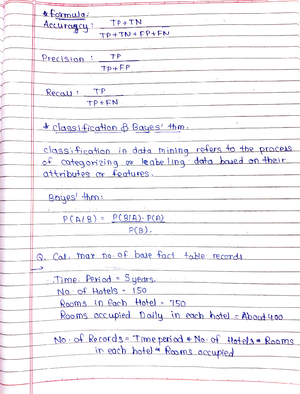 * formula:
Accuracy : TP+TN
TP+TN+FP+FN
Precision : TP
TP+FP
Recall : TP
TP+FN
* classification & Bayes' thm.
classification in data mining refers to the process
of categorizing or leabeling data based on their
attributes or features.
Bayes' thm:
P(A/B) = P(B/A). P(A)
P(B).
Q. Cal. max no. of base fact table records.
→
Time Period = 5 years.
No. of Hotels = 150
Rooms in Each Hotel = 750
Rooms occupied Daily in each hotel = About 400
No. of Records = Time period * No. of Hotels * Rooms
in each hotel * Rooms occupied